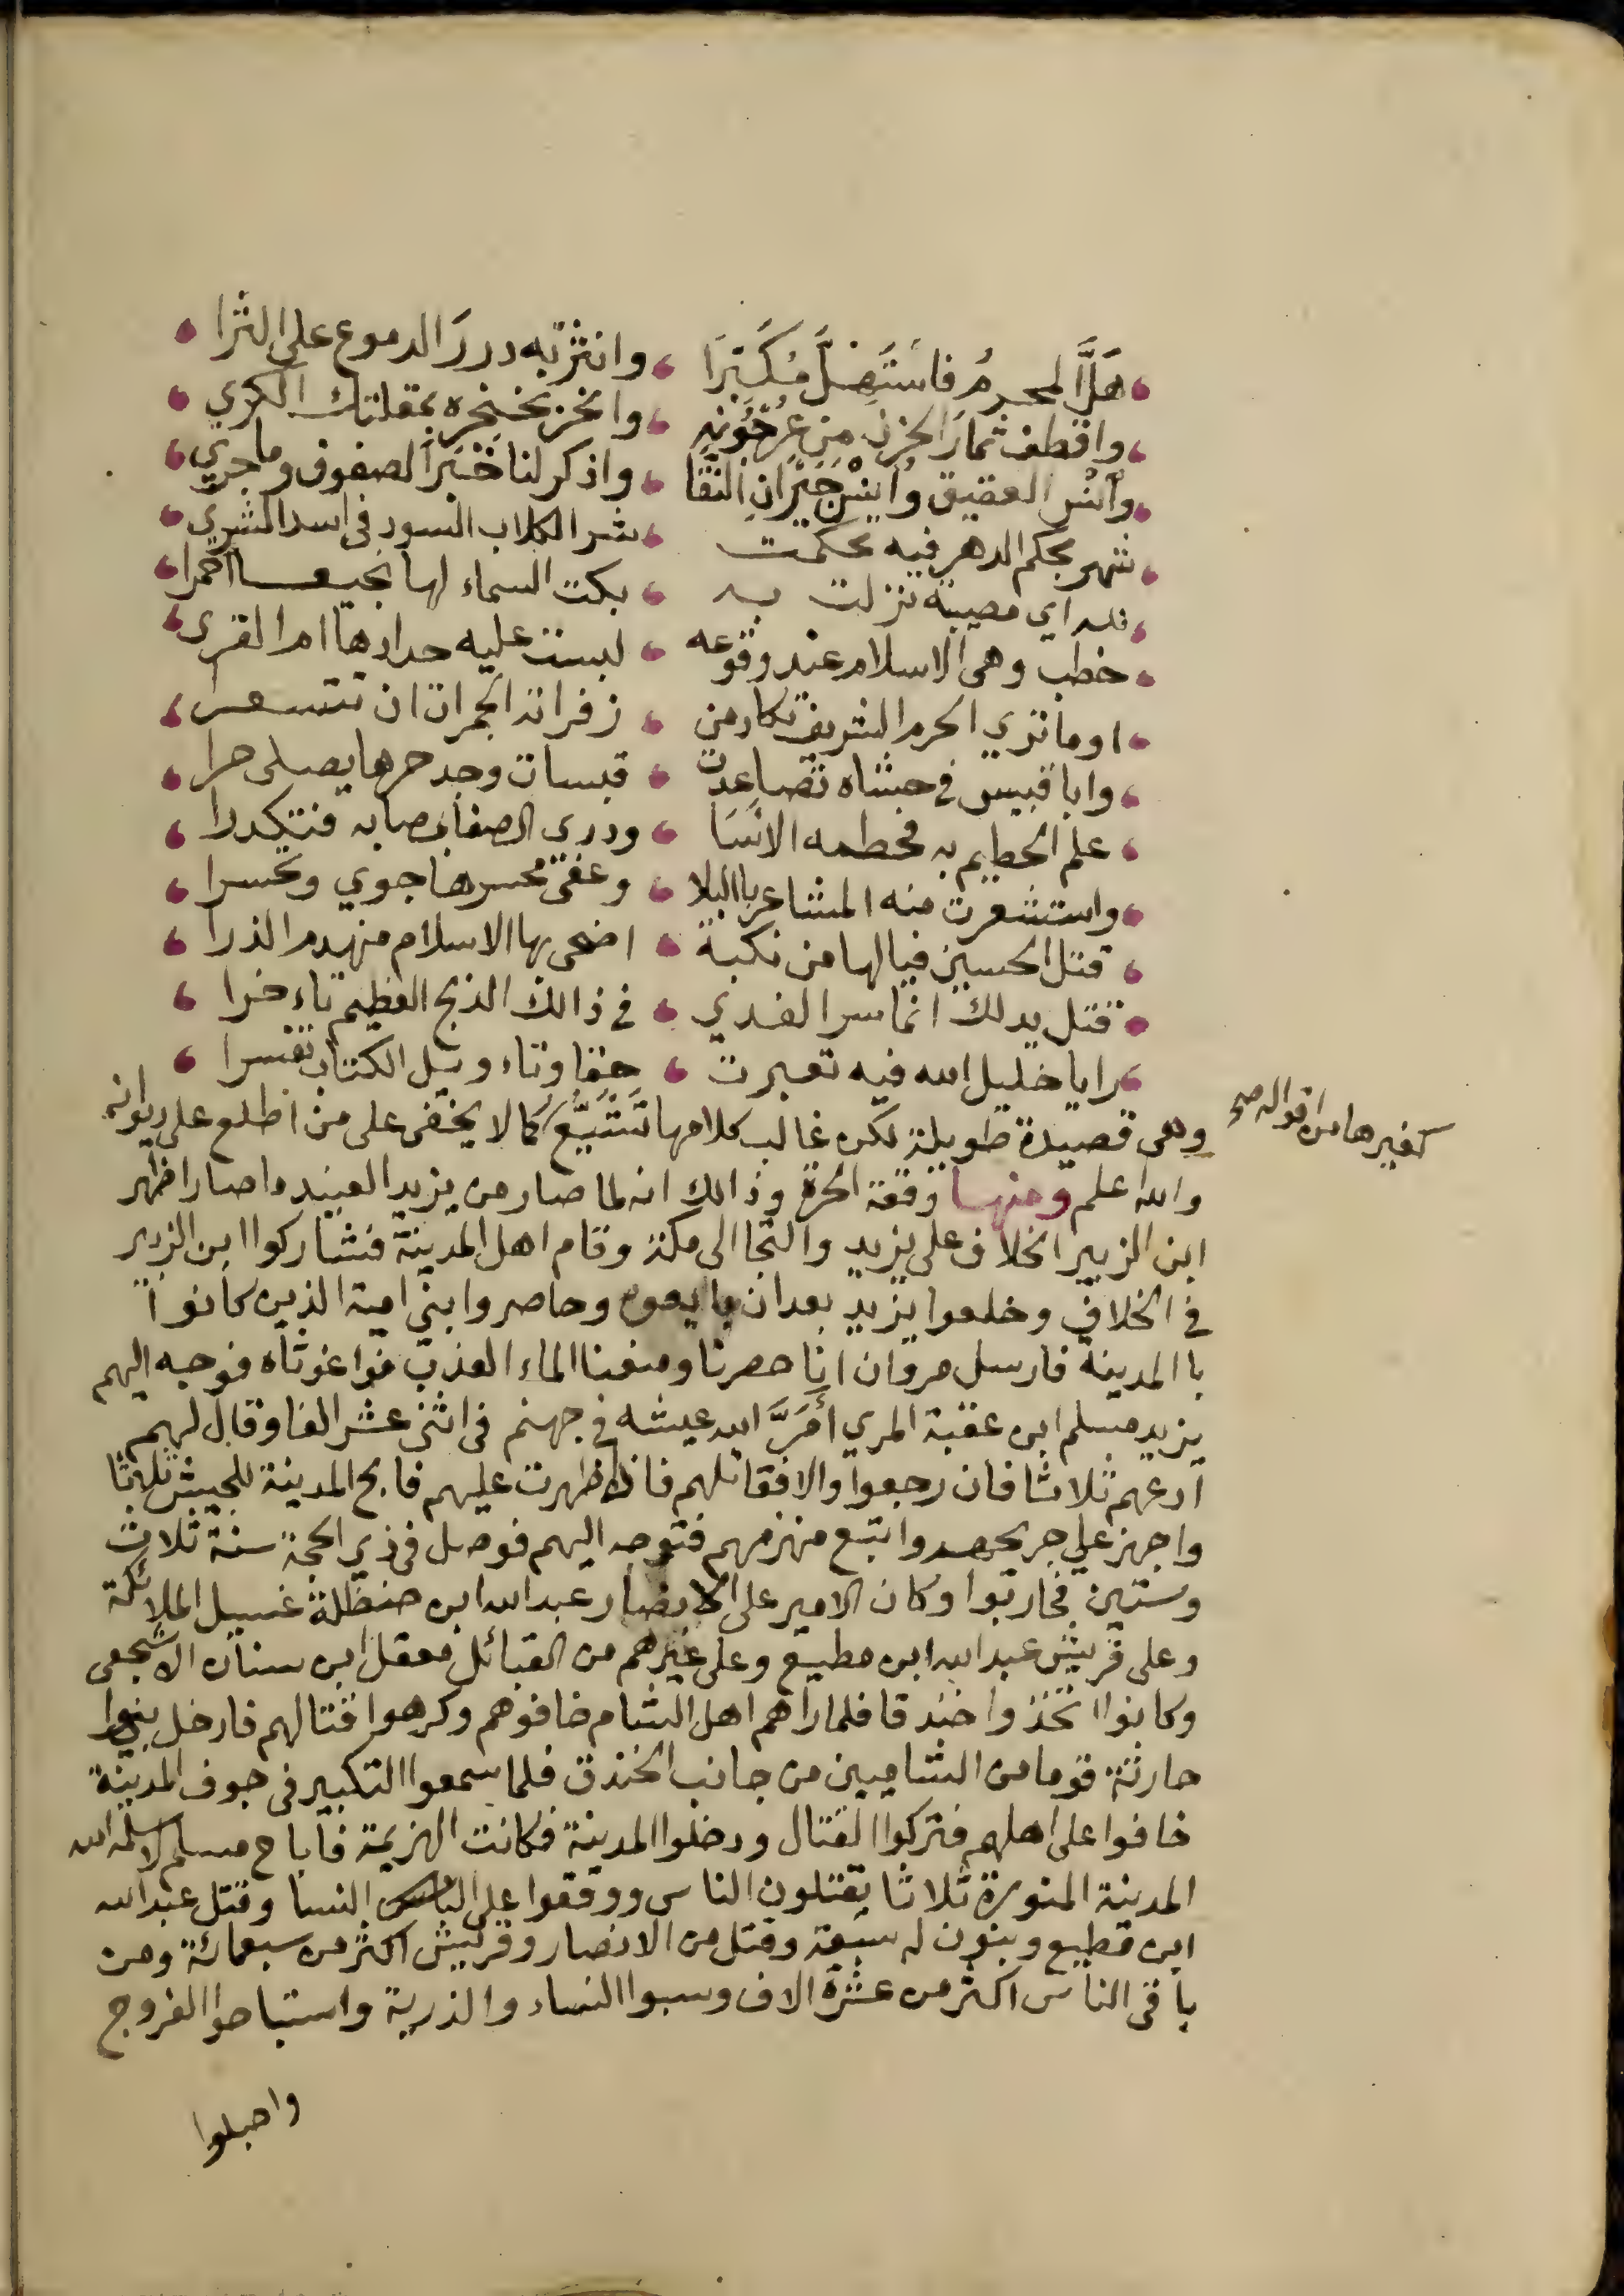 هَلَّ المحرمُ فاَستَهِلَّ مُكَبِّرَا وانثر به دررَ الدموع على الثرا
واقطف ثمارَ الحزن من عُرْجُونِهِ وانحر بخنجره بمقلتك الكري
وأنسَ العقيق وانسَ جيْرانِ النَّقَا واذكر لنا خَبَرَ الصفوف وما جري
شهر بحكم الدهر فيه تحكمت شر الكلاب السود في اسد الشري
لله اي مصيبة نزلت به بكت السماء لها نجيعا احمرا
خطب وهى الاسلام عند وقوعه لبست عليه حدادها ام القرى
او ما تري الحرم الشريف تكاد من زفراته الجمرات ان تتسعرا
وابا قبيس في حشاه تصاعدت قبسات وجد حرها يصلى حرا
علم الحطيم به فحطمه الاسَا ودرى الصفا بمصابه فتكدرا
واستشعرت منه المشاعر باالبلا وعفى محسرها جوي وتحسرا
قتل الحسين فيا لها من نكبة اضحى بها الاسلام منهدم الذرا
قتل يدلك انما سر الفدي في ذالك الذبح العظيم تاءخرا
رايا خليل الله فيه تعبرت حقا وتاءويل الكتاب تفسرا
وهى قصيدة طويلة لكن غالب كلامها تَشَيُّعُ كما لا يخفى على من اطلع على ديوانه
كغيرها من اقواله صح
والله اعلم ومنها وقعة الحرة وذالك انه لما صار من يزيد العنيد ما صار اظهر
ابن الزبير الخلاف على يزيد والتجا الى مكة وقام اهل المدينة فشاركوا ابن الزبير
في الخلاف وخلعوا يزيد بعد ان بايعوه وحاصروا بني امية الذين كانوا
باالمدينة فارسل مروان انا حصرنا ومنعنا الماء العذب فواغوثاه فوجه اليهم
يزيد مسلم ابن عقبة المري أمَرَّ الله عيشه في جهنم في اثني عشر الفا وقال لهم
ادعهم ثلاثا فان رجعوا والا فقاتلهم فاذا ظهرت عليهم فابح المدينة للجيش ثلاثا
واجهز على جريحهم واتبع منهزمهم فتوجه اليهم فوصل في ذي الحجة سنة ثلاث
وستين فحاربوا وكان الامير على الانصار عبد الله ابن حنظلة غسيل الملائكة
وعلى قريش عبد الله ابن مطيع وعلى غيرهم من القبائل معقل ابن سنان الاشجعى
وكانوا اتخذوا خندقا فلما راهم اهل الشام خافوهم وكرهوا قتالهم فادخل بنوا
حارثة قوما من الشاميين من جانب الخندق فلما سمعوا التكبير في جوف المدينة
خافوا على اهلهم فتركوا القتال ودخلوا المدينة فكانت الهزيمة فاباح مسلم لا سلمه الله
المدينة المنورة ثلاثا يقتلون الناس ووقعوا على النسا وقتل عبد الله
ابن مطيع وبنون له سبعة وقتل من الانصار وقريش اكثر من سبعمائة ومن
باقى الناس اكثر من عشرة الاف وسبوا النساء والذرية واستباحوا الفروج
واحبلوا